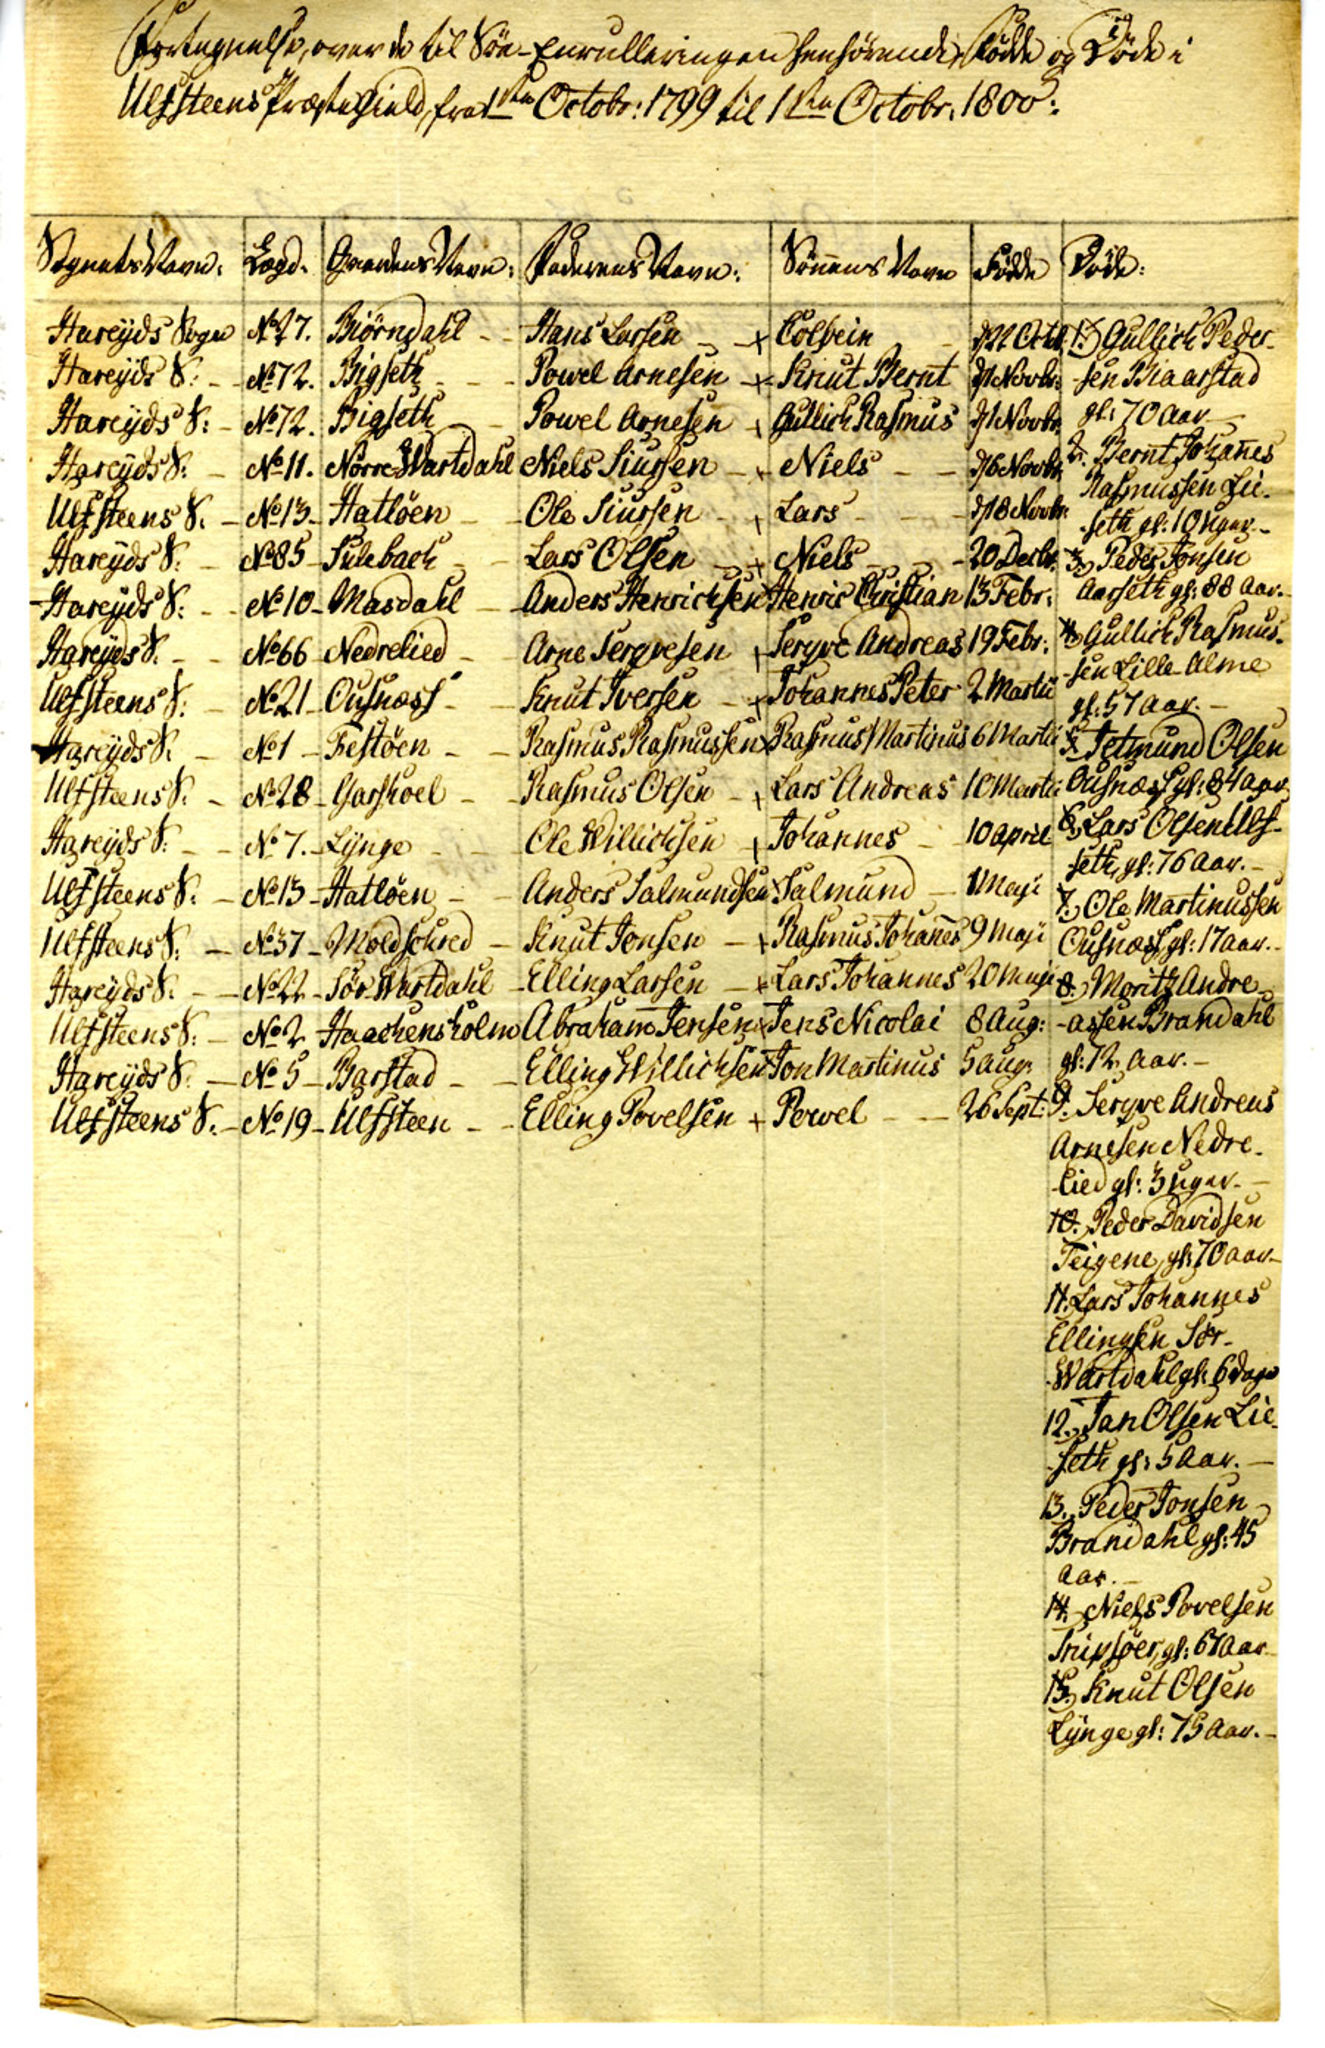 Fortegnelse, over de til Söe-Enrulleringen henhörende, Födde og Döde i
Ulfsteens Præstegield, fra 1ste Octobr: 1799 til 1ste Octobr: 1800:
Sognets Navn: Lægd. Gaardens Navn: Faderens Navn: Sönnens Navn Födde Döde:
Hareyds Sogn No 27. Biörndahl - - Hans Larsen - - + Colbein
Hareyds S: - - No 72. Bigseth - - - Powel Arnesen - + Knut Bernt d/1 Novbr:
Hareyds S: - No 72. Bigseth - Powel Arnesen + Gullich Rasmus d/1 Novbr.
Hareyds S: - No 11. Nörre Wartdahl Niels Siursen - + Niels - - d/6 Novbr.
Ulfsteens S. - No 13 - Hatlöen - - Ole Siursen - + Lars - - - d/18 Novbr.
Hareyds S: - No 85 - Sulebach - - Lars Olsen - + Niels - - 20 Decbr.
Hareyds S: - - No 10 - Masdahl - Anders Henrichsen Henric Christian 13 Febr:
Hareyds S. - - No 66 - Nedrelied - Arne Sergvesen + Seryve Andreas 19 Febr:
Ulfsteens S: - No 21 - Ousnæss - - Knut Iversen - + Johannes Peter 2 Martii
Hareyds S. - No 1 - Festöen - - Rasmus Rasmussen + Rasmus Martinus 6 Martii
Ulfsteens S. - No 28 - Garshoel - - Rasmus Olsen - + Lars Andreas 10 Martii
Hareyds S: - - No 7. - Lÿnge - - Ole Willichsen + Johannes - 10 April
Ulfsteens S: - No 13 - Hatlöen - - Anders Salmundsen + Salmund - 1 Maji
Ulfsteens S: - No 37 - Moldschred - Knut Jonsen - + Rasmus Johanes 9 Maji
Hareyds S. - - No 22 - Sör Wartdahl - Elling Larsen - + Lars Johannes 20 Maji
Ulfsteens S: - No 2 Haachensholm Abraham Jensen + Jens Nicolai 8 Aug:
Hareyds S. - No 5 - Barstad - - Elling Willichsen + Jon Martinus 5 Aug.
Ulfsteens S. - No 19 - Ulfsteen - - Elling Povelsen + Powel - - 26 Sept:
1.) Gullich Peder-
-sen Baarstad
gl: 70 Aar -
2. Bernt Johanes
Rasmussen Lie-
-seth gl: 10 Uger. -
3.) Peder Jonsen
Aarseth gl: 88 Aar. -
4.) Gullich Rasmus-
-sen Lille-Alme
gl: 57 Aar. -
5. Jetmund Olsen
Ousnæss gl: 84 Aar
6.) Lars Olsen Ulf-
seth, gl: 76 Aar. -
7.) Ole Martinussen
Ousnæss gl: 17 Aar. -
8. Moritz Andre-
-assen Brandahl
gl: 72. Aar. -
9. Seryve Andreas
Arnesen Nedre-
-lied gl: 3 Uger. -
10. Peder Davidsen
Teigene, gl: 70 Aar -
11. Lars Johannes
Ellingsen Sör-
-Wartdahl gl: 6 Dage
12.) Jan Olsen Lie-
-seth gl: 5 Aar. -
13. Peder Jonsen
Brandahl gl: 45
Aar. -
14.) Niels Povelsen
Snipsöer, gl: 67 Aar -
15.) Knut Olsen
Lÿnge gl: 75 Aar. -